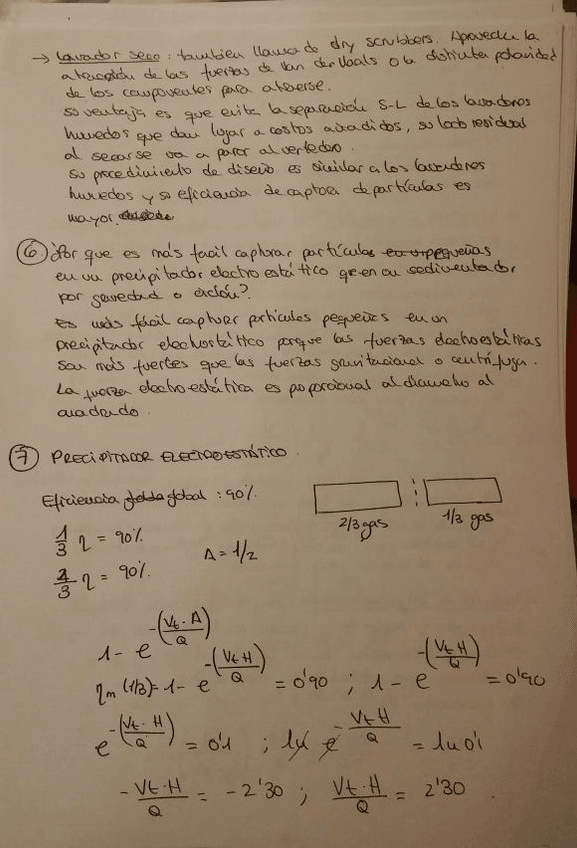 → Lavador seco: tambien llamado dry scrubbers. Aprovecha la
atracción de las fuerzas de Van der Waals o la distinta polaridad
de los componentes para atraerse.
su ventaja es que evita la separación S-L de los lavadores
humedos que dan lugar a costos añadidos, su lodo residual
al secarse va a parar al vertedero.
Su procedimiento de diseño es similar a los lavadores
humedos y su eficiencia de captura de partículas es
mayor.
⑥ ¿Por que es más facil capturar partículas pequeñas
en un precipitador electroestático que en un sedimentador
por gravedad o ciclón?
Es más fácil capturar partículas pequeñas en un
precipitador electrostático porque las fuerzas electroestáticas
son más fuertes que las fuerzas gravitacional o centrífuga.
La fuerza electroestática es proporcional al diametro al
cuadrado.
⑦ PRECIPITADOR ELECTROESTÁTICO.
Eficiencia global: 90%.
2/3 gas 1/3 gas
1/3 η = 90%
A = 1/2
2/3 η = 90%.
1 - e^-(Vt·A/Q)
ηm (1/3) = 1 - e^-(Vt H/Q) = 0'90 ; 1 - e^-(Vt H/Q) = 0'90
e^-(Vt·H/Q) = 0'1 ; ln e^-Vt H/Q = ln 0'1
-Vt·H/Q = -2'30 ; Vt·H/Q = 2'30.